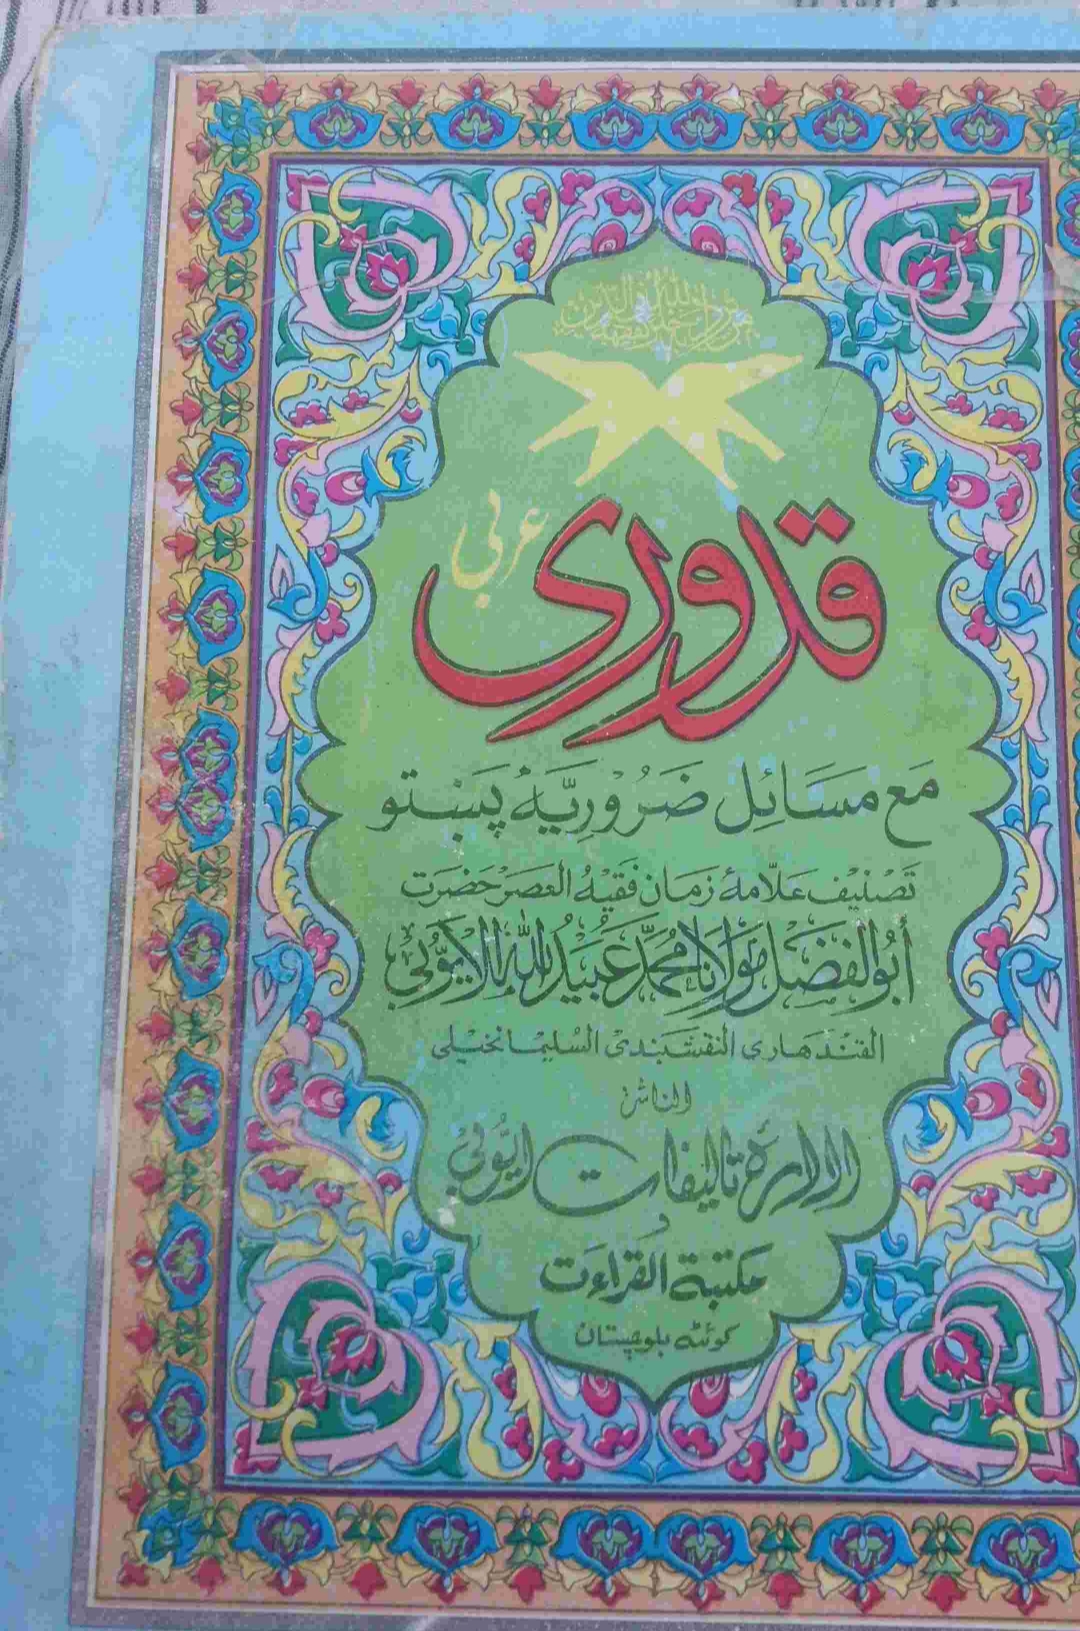 من يرد الله به خيرا يفقهه في الدين
قدوری عربی
مَع مَسَائِل ضَرُورِيَّهٔ پَښتو
تَصْنِيف عَلّامهٔ زمان فَقِيهُ العَصَر حَضرَت
أَبُو الفَضَل مَولَانا مُحمَّد عُبَيدُ اللّٰه الايُّوبي
القندهاری النقشبندی السليمانخيلی
الناشر
الادارة تاليفات ايوبي
و
مكتبة القراءت
کوئٹه بلوچستان